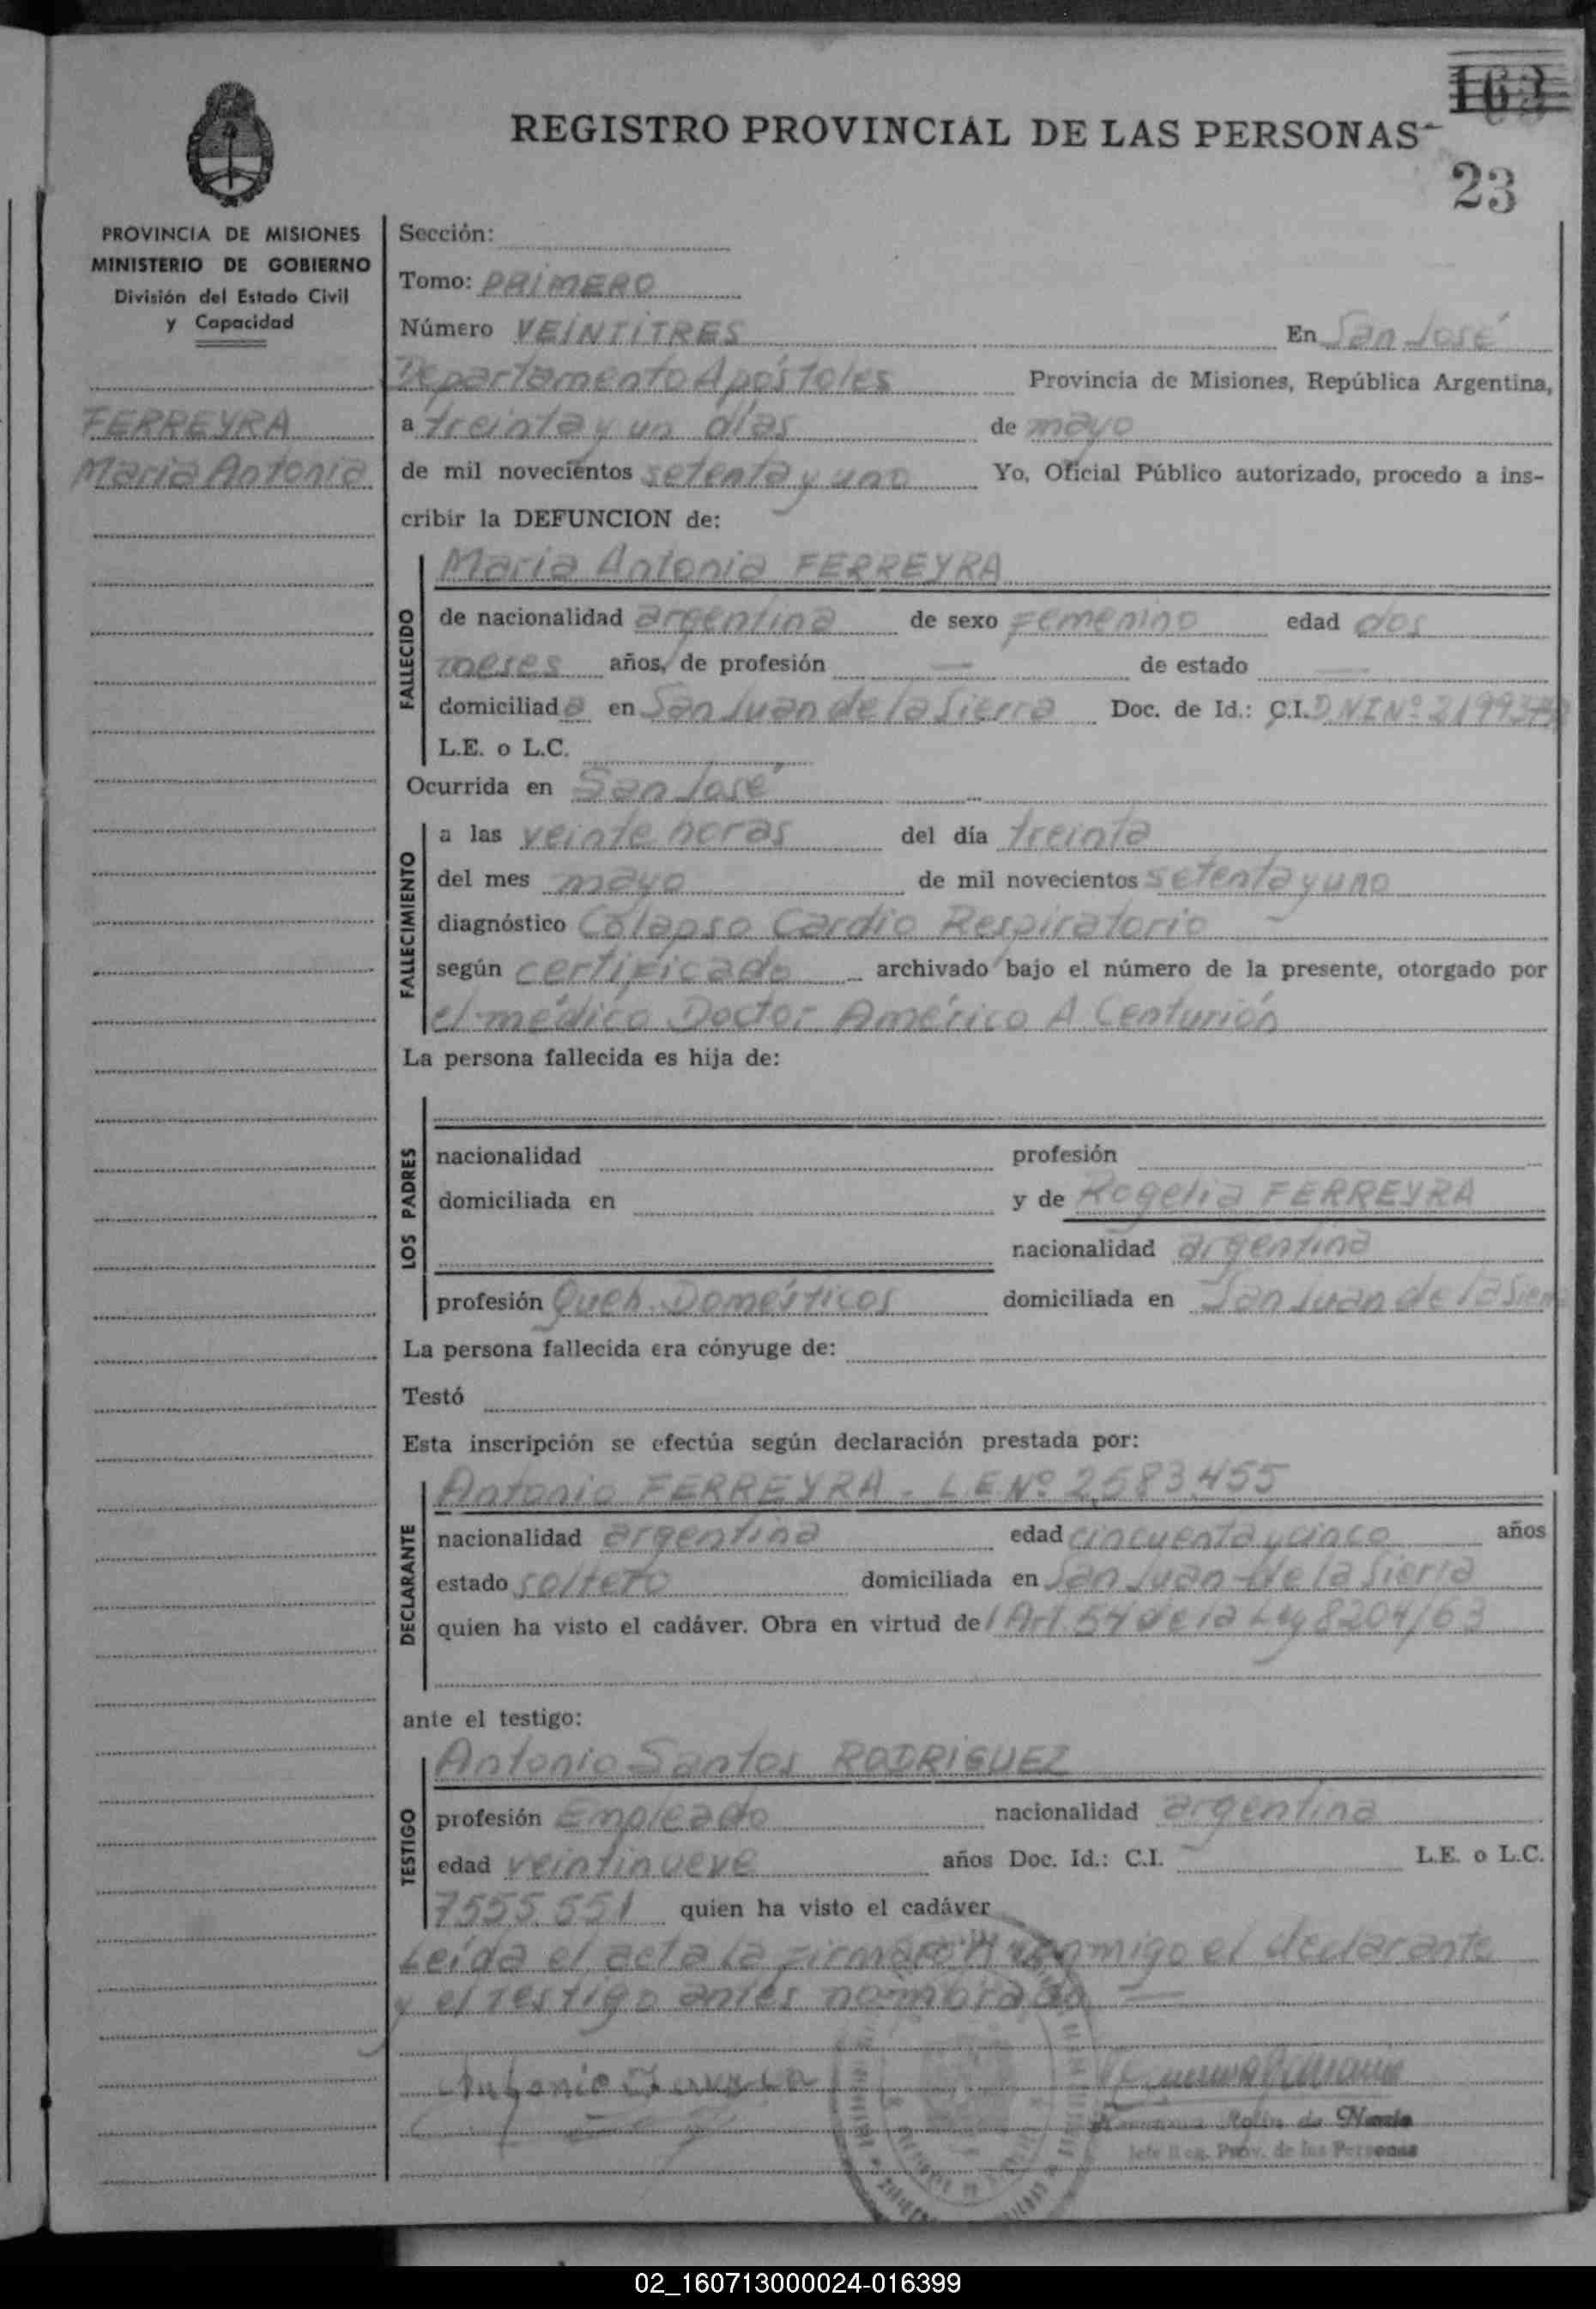 163
REGISTRO PROVINCIAL DE LAS PERSONAS
23
PROVINCIA DE MISIONES
MINISTERIO DE GOBIERNO
División del Estado Civil
y Capacidad
FERREYRA
Maria Antonia
Sección:
Tomo: PRIMERO
Número VEINTITRES En San José
Departamento Apóstoles Provincia de Misiones, República Argentina,
a treinta y un días de mayo
de mil novecientos setenta y uno Yo, Oficial Público autorizado, procedo a ins-
cribir la DEFUNCION de:
FALLECIDO
Maria Antonia FERREYRA
de nacionalidad argentina de sexo Femenino edad dos
meses años, de profesión — de estado —
domiciliada en San Juan de la Sierra Doc. de Id.: C.I. DNI Nº
L.E. o L.C.
Ocurrida en San José
FALLECIMIENTO
a las veinte horas del día treinta
del mes mayo de mil novecientos setenta y uno
diagnóstico Colapso Cardio Respiratorio
según certificado archivado bajo el número de la presente, otorgado por
el médico Doctor Américo A Centurión
La persona fallecida es hija de:
LOS PADRES
nacionalidad profesión
domiciliada en y de Rogelia FERREYRA
nacionalidad argentina
profesión Queh. Domésticos domiciliada en San Juan de la Sierra
La persona fallecida era cónyuge de:
Testó
Esta inscripción se efectúa según declaración prestada por:
DECLARANTE
Antonio FERREYRA - L.E.Nº 2.583.455
nacionalidad argentina edad cincuenta y cinco años
estado soltero domiciliada en San Juan de la Sierra
quien ha visto el cadáver. Obra en virtud del Art. 54 de la Ley 8204/63
ante el testigo:
TESTIGO
Antonio Santos RODRIGUEZ
profesión Empleado nacionalidad argentina
edad veintinueve años Doc. Id.: C.I. L.E. o L.C.
7.555.551 quien ha visto el cadáver
Leída el acta la firmaron conmigo el declarante
y el testigo antes nombrado —
Antonio
Rolin de
Jefe Reg. Prov. de las Personas
02_160713000024-016399